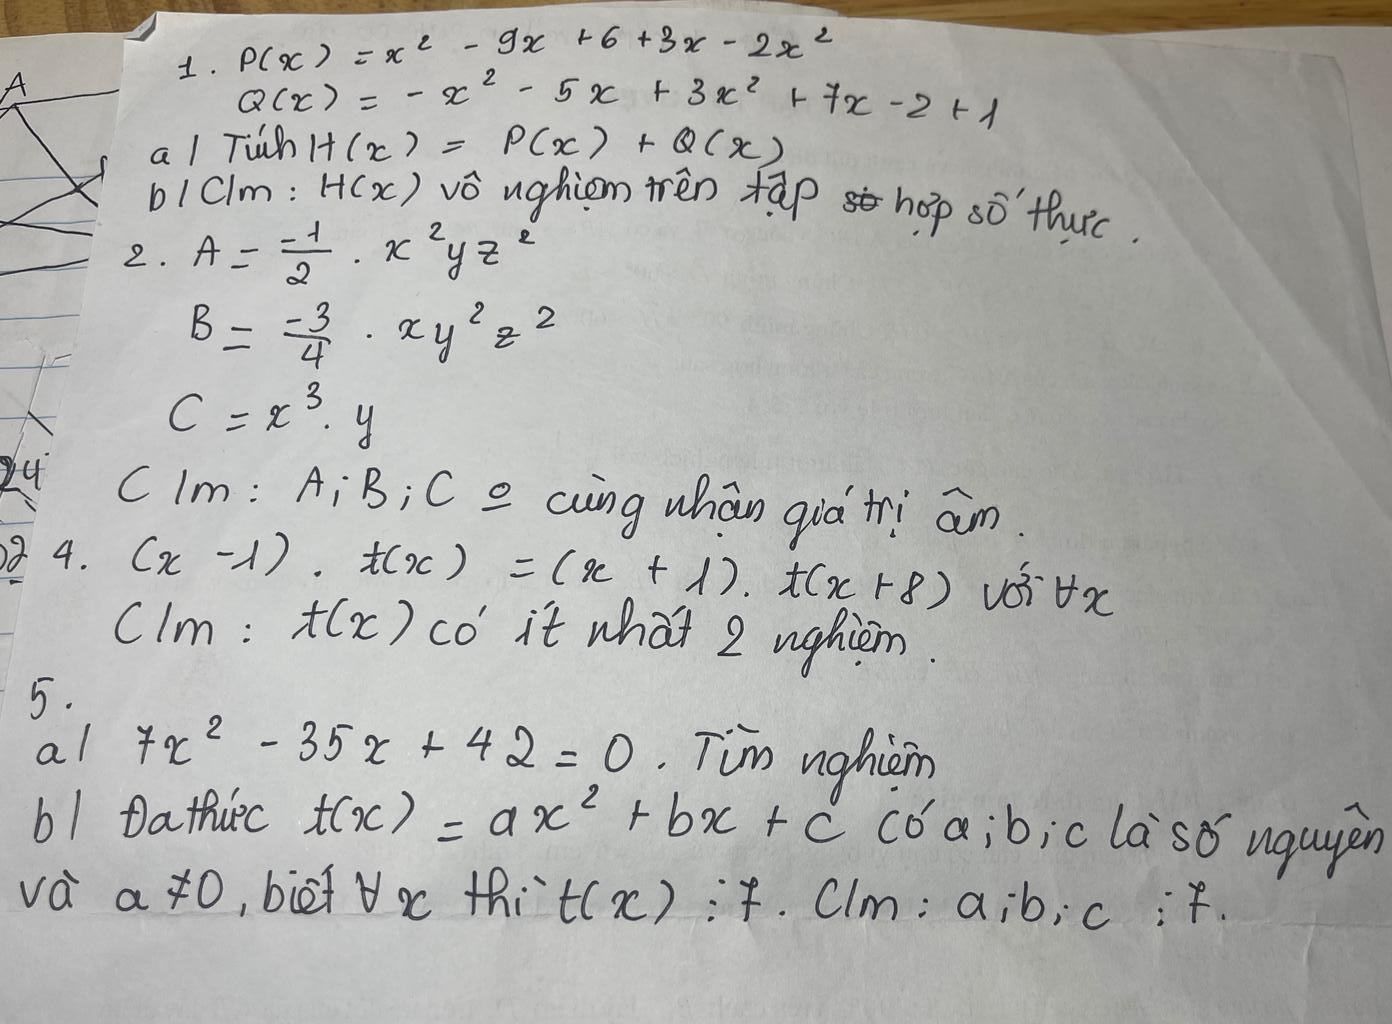 1. P(x) = x² - 9x + 6 + 3x - 2x²
Q(x) = - x² - 5x + 3x² + 7x - 2 + 1
a / Tính H(x) = P(x) + Q(x)
b / C/m : H(x) vô nghiệm trên tập hợp số thực .
2. A = -1/2 . x²yz²
B = -3/4 . xy²z²
C = x³. y
C/m : A ; B ; C cùng nhận giá trị âm .
4. (x - 1) . t(x) = (x + 1) . t(x + 8) với ∀x
C/m : t(x) có ít nhất 2 nghiệm .
5.
a / 7x² - 35x + 42 = 0 . Tìm nghiệm
b / Đa thức t(x) = ax² + bx + c có a ; b ; c là số nguyên
và a ≠ 0 , biết ∀ x thì t(x) ⋮ 7 . C/m : a ; b ; c ⋮ 7 .
A
24